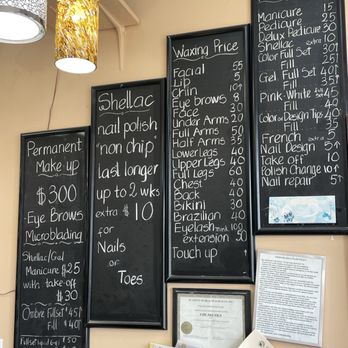 Permanent
Make up
$300
Eye Brows
Microblading
Shellac/Gel
Manicure $25
with take off
$30
Ombre Full set $45↑
Fill $40↑
Shellac
nail polish
"non chip"
last longer
up to 2 wks
extra $10
for
Nails
or
Toes
Waxing Price
Facial 55
Lip 5
Chin 10↑
Eye brows 8
Face 30
Under Arms 20
Full Arms 50
Half Arms 35
Lower Legs 40
Upper Legs 40
Full Legs 60
Chest 40
Back 40
Bikini 30
Brazilian 40
Eyelash
extension 50
Touch up ↑
Manicure 15
Pedicure 25
Delux Pedicure 30
Shellac extra 10
Color Full Set 30↑
Fill
Gel Full Set 40↑
Fill
Pink-White
Fill
Color or Design Tips
Fill
French extra 5
Nail Design 5↑
Take off 10
Polish Change 10↑
Nail repair 5↑